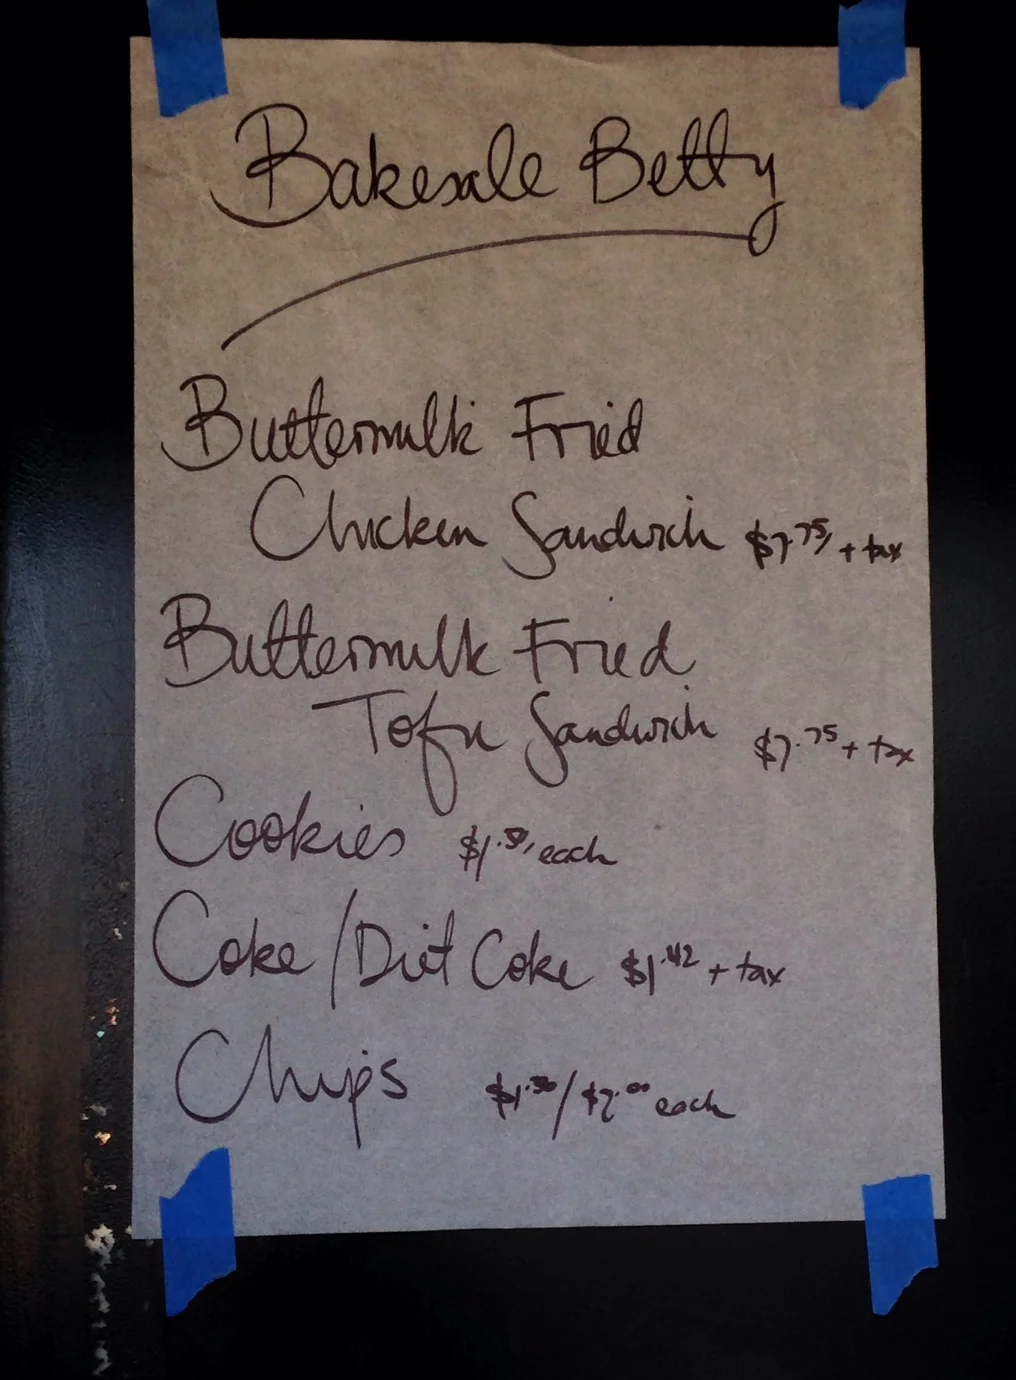 Bakesale Betty
Buttermilk Fried
Chicken Sandwich $7.75 + tax
Buttermilk Fried
Tofu Sandwich $7.75 + tax
Cookies $1.50 each
Coke/Diet Coke $1.42 + tax
Chips $1.50/$2.00 each